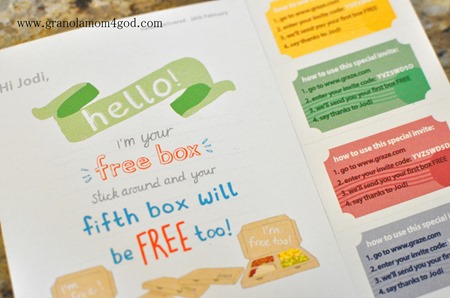 www.granolamom4god.com
26th February
Hi Jodi,
hello!
I'm your
free box
stick around and your
fifth box will
be FREE too!
I'm
free!
I'm
free too!
2. enter your invite code:
3. we'll send you your first box FREE
4. say thanks to Jodi
how to use this special invite:
1. go to www.graze.com
2. enter your invite code: YVZSWDSD
3. we'll send you your first box FREE
4. say thanks to Jodi
how to use this special invite:
1. go to www.graze.com
2. enter your invite code: YVZSWDSD
3. we'll send you your first box FREE
4. say thanks to Jodi
how to use this special
1. go to www.graze.com
2. enter your invite code:
3. we'll send you your
4. say thanks to Jodi